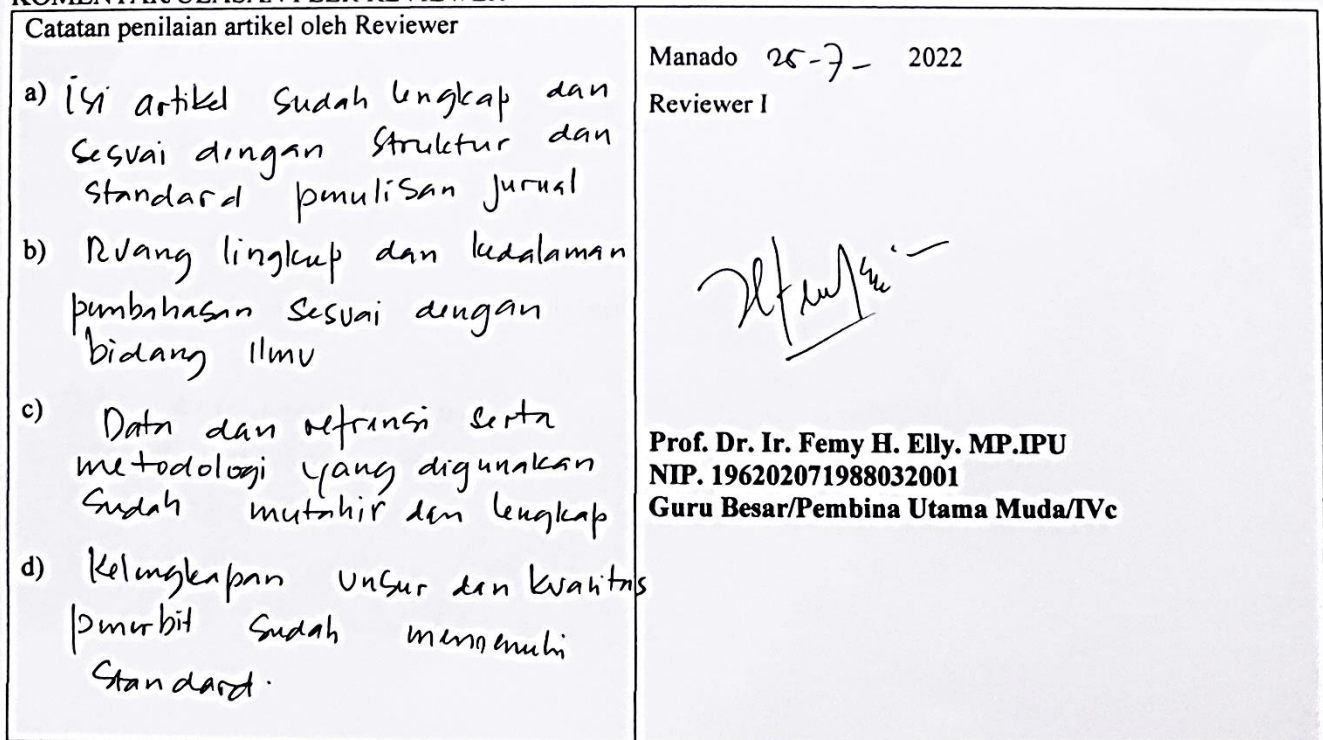 KOMENTAR/ULASAN PEER REVIEWER
Catatan penilaian artikel oleh Reviewer
a) Isi artikel sudah lengkap dan
sesuai dengan struktur dan
standard penulisan jurnal
b) Ruang lingkup dan kedalaman
pembahasan sesuai dengan
bidang Ilmu
c) Data dan refrensi serta
metodologi yang digunakan
sudah mutahir dan lengkap
d) Kelengkapan unsur dan kualitas
penerbit sudah memenuhi
standard.
Manado 25-7- 2022
Reviewer I
Prof. Dr. Ir. Femy H. Elly. MP.IPU
NIP. 196202071988032001
Guru Besar/Pembina Utama Muda/IVc